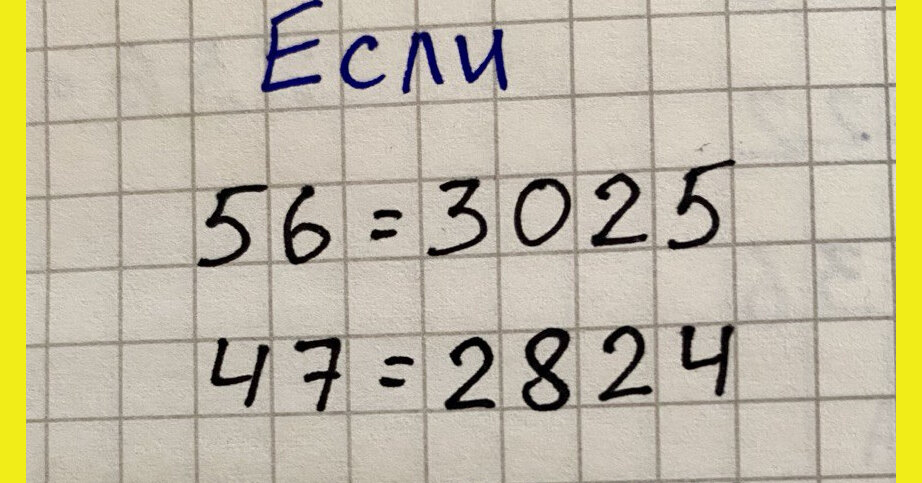 Если
56=3025
47=2824